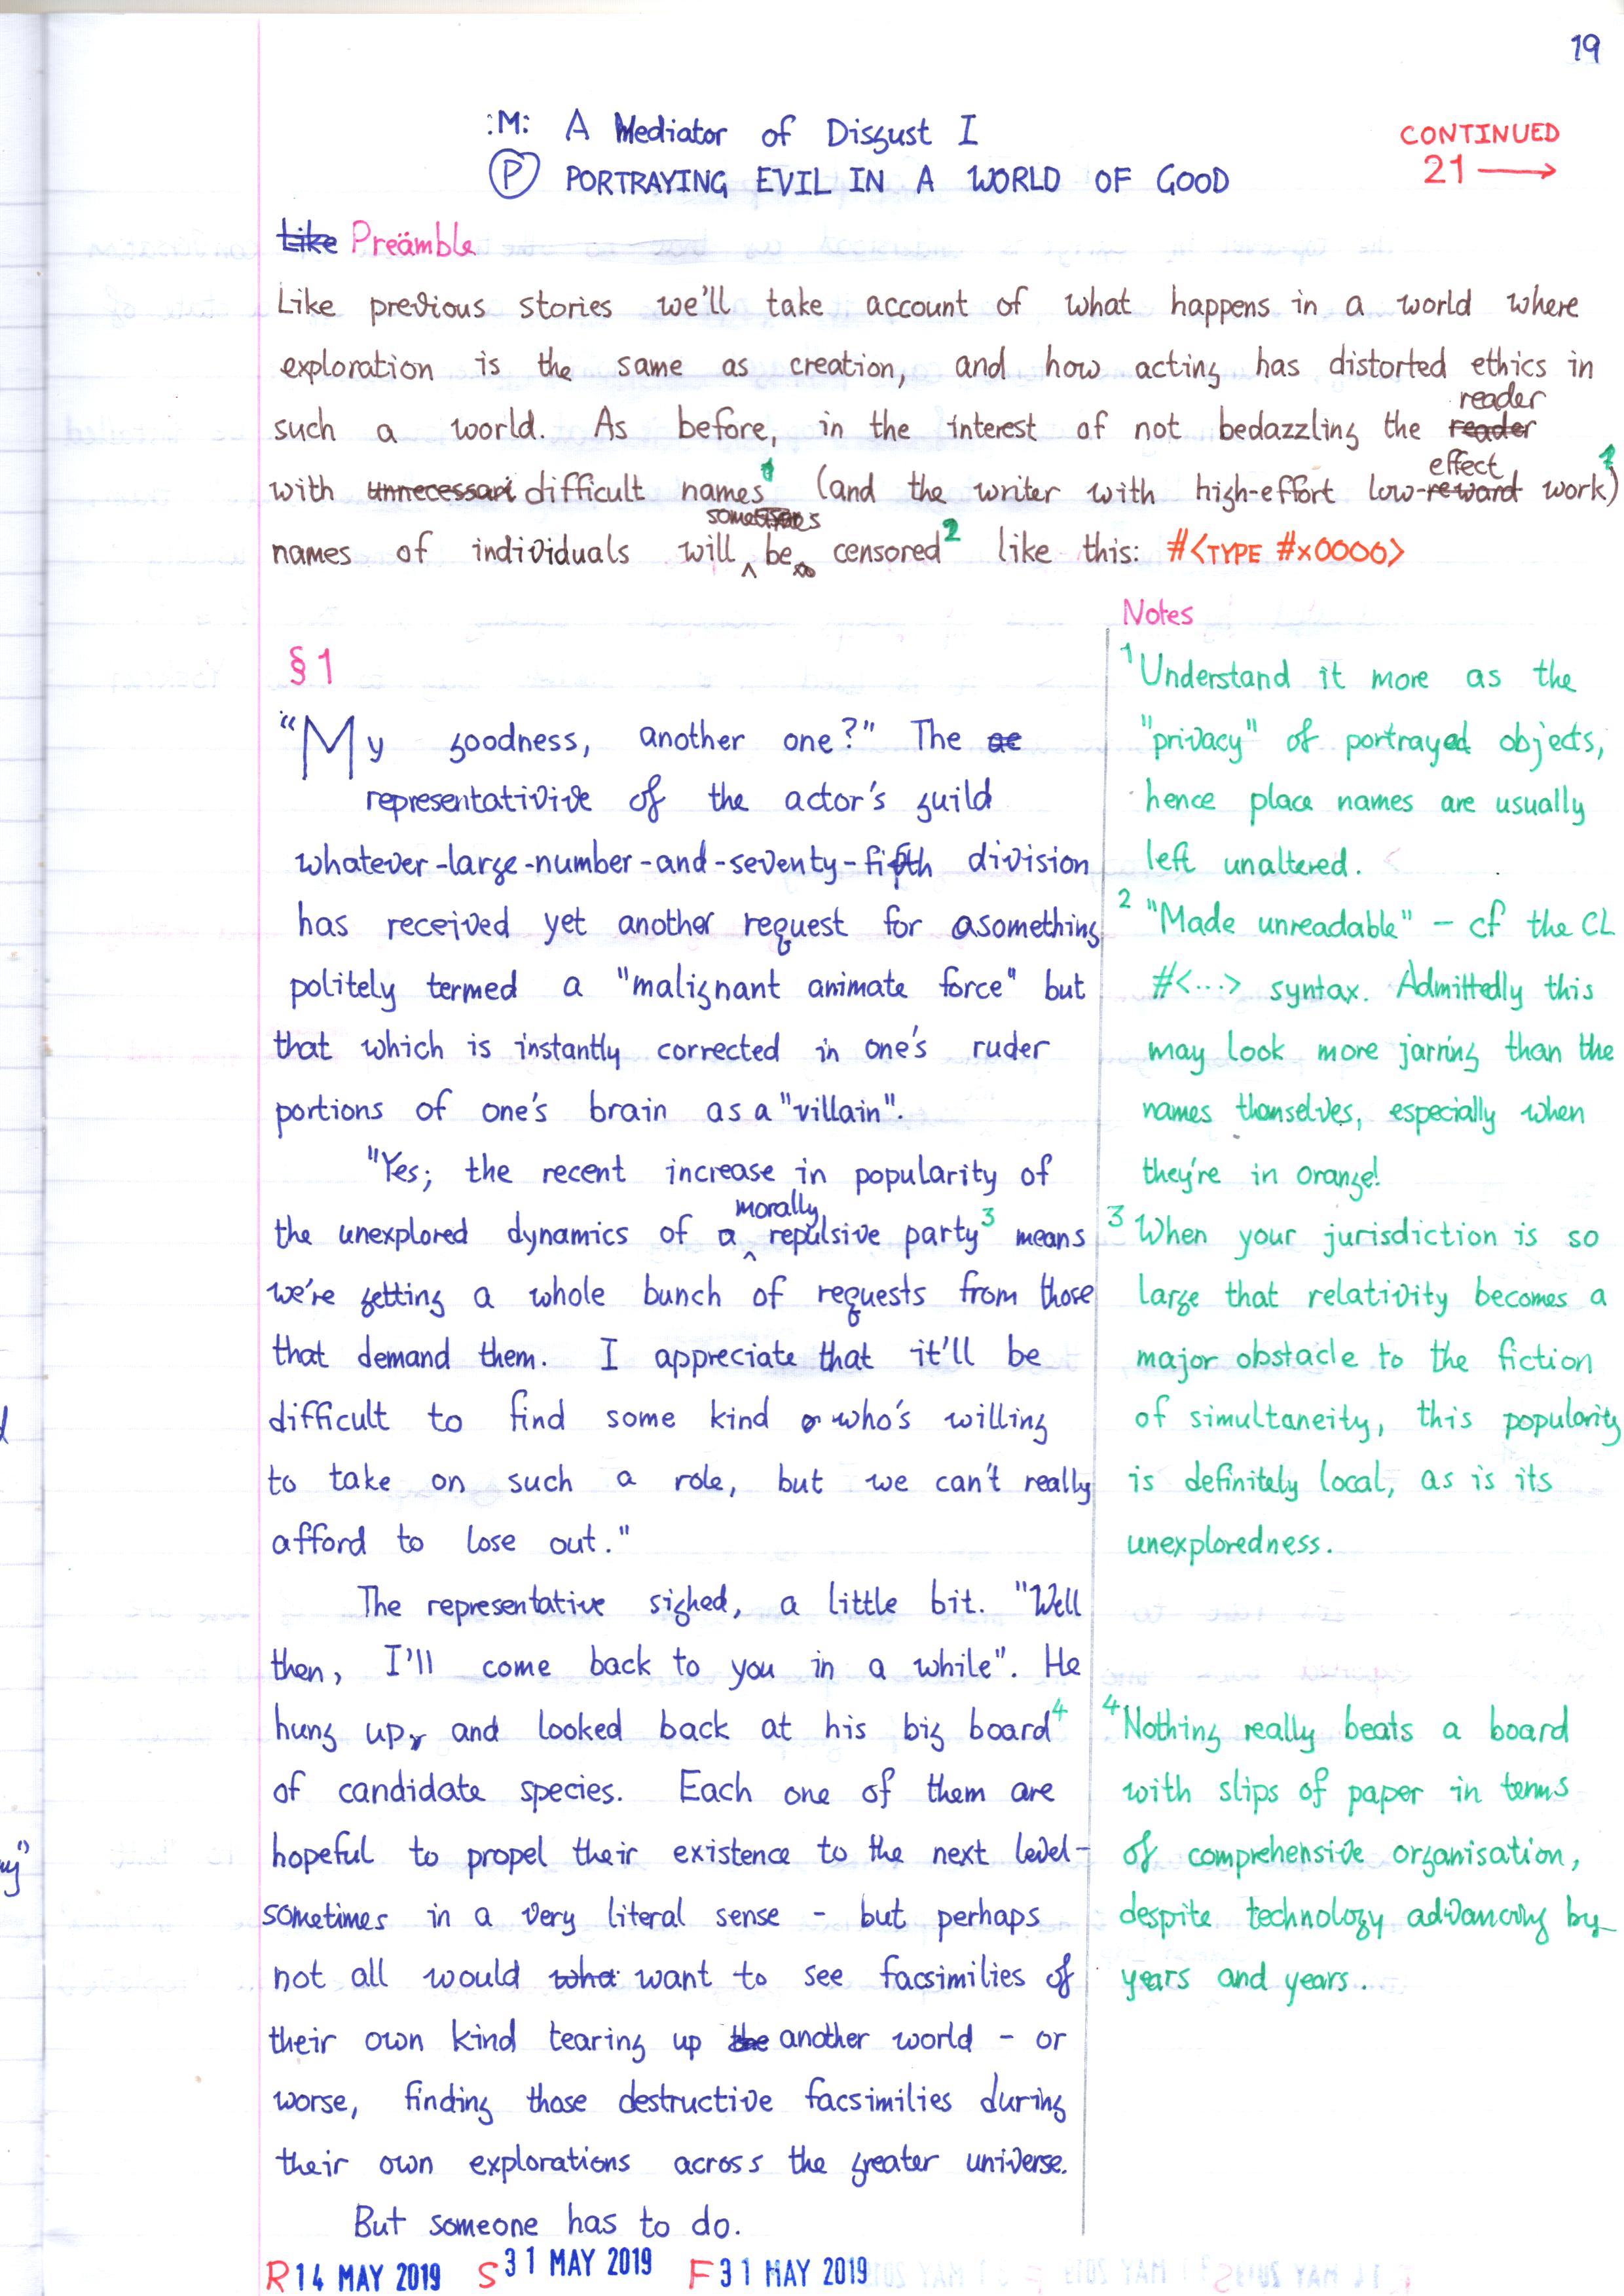 19
:M: A Mediator of Disgust I
CONTINUED
21 →
Ⓟ PORTRAYING EVIL IN A WORLD OF GOOD
Like Preämble
Like previous stories we'll take account of what happens in a world where
exploration is the same as creation, and how acting has distorted ethics in
reader
such a world. As before, in the interest of not bedazzling the reader
effect
with unnecessari difficult names¹ (and the writer with high-effort low-reward work)¹
sometimes
names of individuals will ^ be censored² like this: #<TYPE #x0000>
§1
"My goodness, another one?" The ac
representativive of the actor's guild
whatever-large-number-and-seventy-fifth division
has received yet another request for a something
politely termed a "malignant animate force" but
that which is instantly corrected in one's ruder
portions of one's brain as a "villain".
"Yes; the recent increase in popularity of
morally
the unexplored dynamics of a ^ repulsive party³ means
we're getting a whole bunch of requests from those
that demand them. I appreciate that it'll be
difficult to find some kind who's willing
to take on such a role, but we can't really
afford to lose out."
The representative sighed, a little bit. "Well
then, I'll come back to you in a while". He
hung up, and looked back at his big board⁴
of candidate species. Each one of them are
hopeful to propel their existence to the next level-
sometimes in a very literal sense - but perhaps
not all would wha want to see facsimilies of
their own kind tearing up the another world - or
worse, finding those destructive facsimilies during
their own explorations across the greater universe.
But someone has to do.
Notes
¹Understand it more as the
"privacy" of portrayed objects,
hence place names are usually
left unaltered.
² "Made unreadable" - cf the CL
#<...> syntax. Admittedly this
may look more jarring than the
names themselves, especially when
they're in orange!
³ When your jurisdiction is so
large that relativity becomes a
major obstacle to the fiction
of simultaneity, this popularity
is definitely local, as is its
unexploredness.
⁴Nothing really beats a board
with slips of paper in terms
of comprehensive organisation,
despite technology advancing by
years and years.
R 14 MAY 2019 S 31 MAY 2019 F 31 MAY 2019